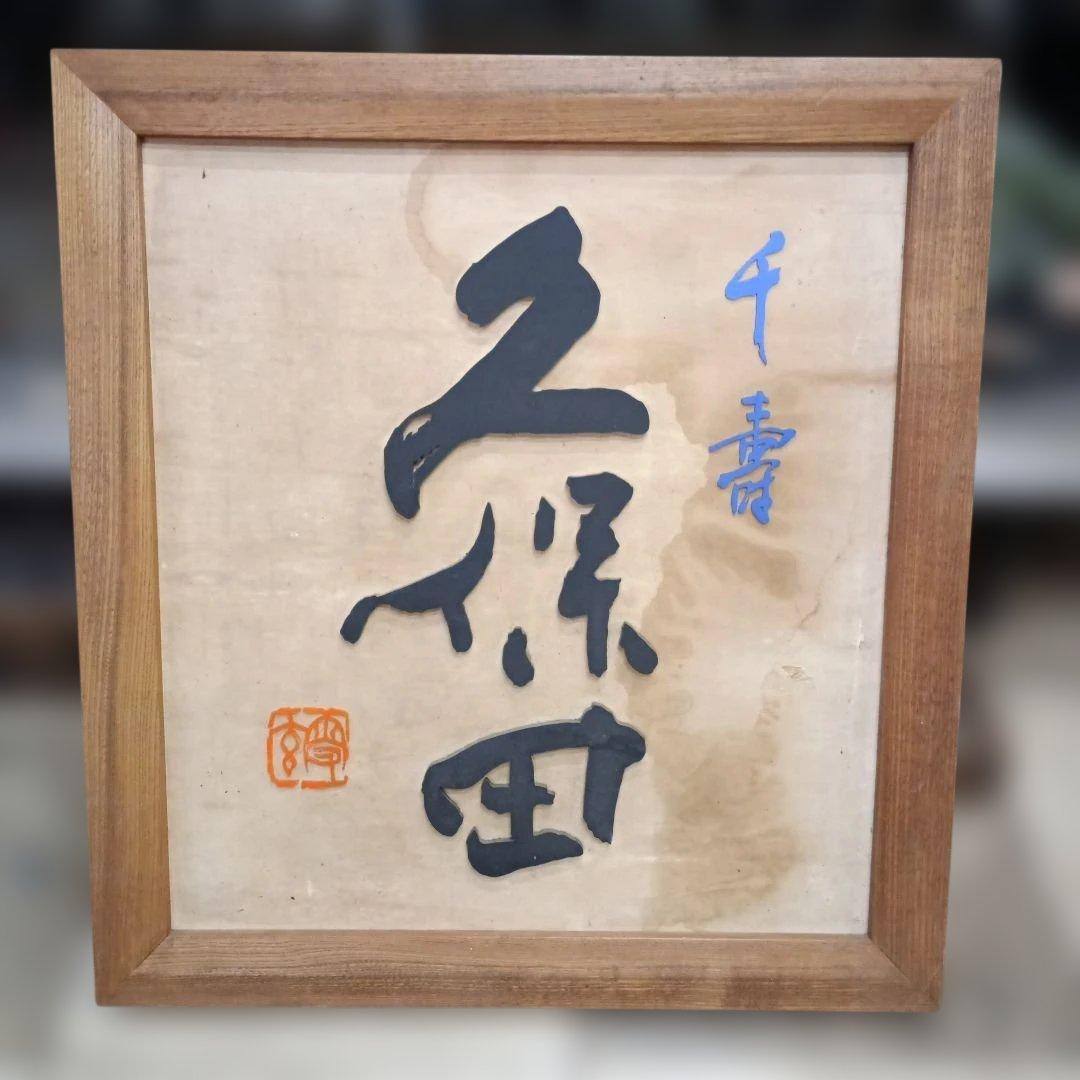 千壽
久保田